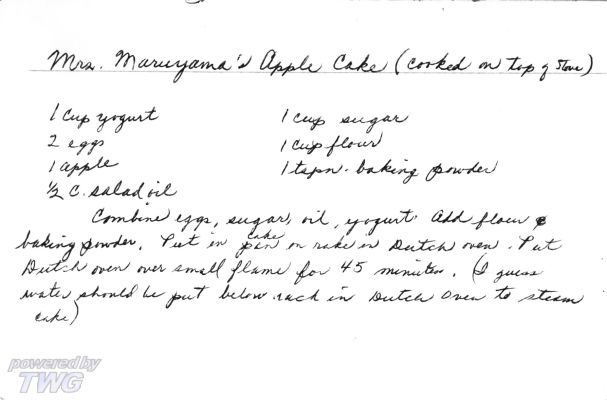 Mrs. Maruyama's Apple Cake (cooked on top of stove)
1 cup yogurt
2 eggs
1 apple
1/2 C. salad oil
1 cup sugar
1 cup flour
1 tspn. baking powder
Combine eggs, sugar, oil, yogurt. Add flour &
baking powder. Put in cake pan on rake in Dutch oven. Put
Dutch oven over small flame for 45 minutes. (I guess
water should be put below rack in Dutch Oven to steam
cake)
powered by
TWG